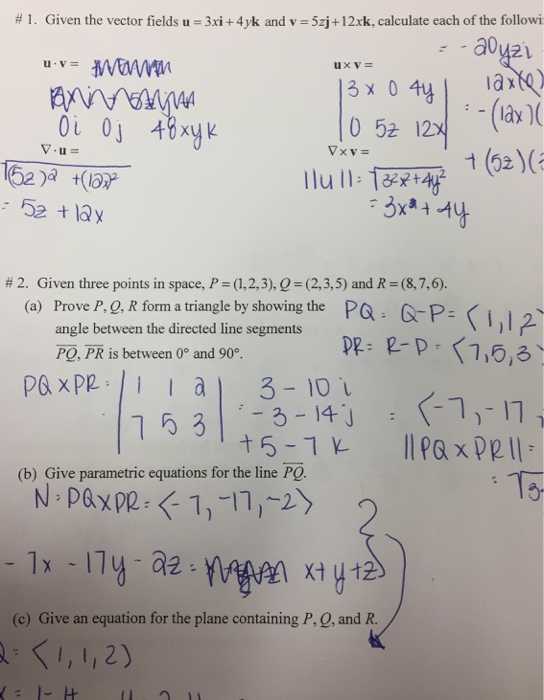 # 1. Given the vector fields u = 3xi + 4yk and v = 5zj + 12xk, calculate each of the followi
u · v =
0i 0j 48xyk
u x v =
= -20yzi
|3x 0 4y|
|0 5z 12x|
= -(12x)(
+ (5z)(3
∇ · u =
√(5z)2 + (12x)2
= 5z + 12x
∇ x v =
||u||: √3x2+4y2
= 3x + 4y
# 2. Given three points in space, P = (1,2,3), Q = (2,3,5) and R = (8,7,6).
(a) Prove P, Q, R form a triangle by showing the
angle between the directed line segments
PQ, PR is between 0° and 90°.
PQ = Q-P = <1,1,2
PR = R-P = <7,5,3
PQ x PR: |1 1 2|
|7 5 3|
3 - 10 i
= - 3 - 14 j
+ 5 - 7 k
= <-7, -17,
||PQ x PR|| =
: √3
(b) Give parametric equations for the line PQ.
N: PQxPR = <-7, -17, -2>
?
-7x - 17y - 2z = x + y + z
(c) Give an equation for the plane containing P, Q, and R.
= <1,1,2>